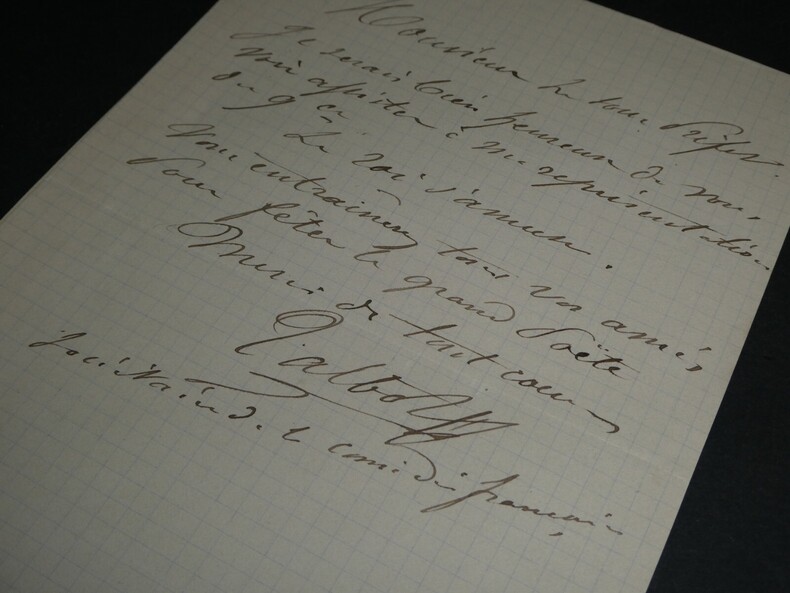 Monsieur le sous Préfet.
Je serais bien heureux de vous
voir assister à ma représentation
du 9 ct
Le roi s'amuse.
Vous entrainerez tout vos amis
Pour fêter le grand Poëte
Merci de tout cœur
Talbot
Sociétaire de la comédie française